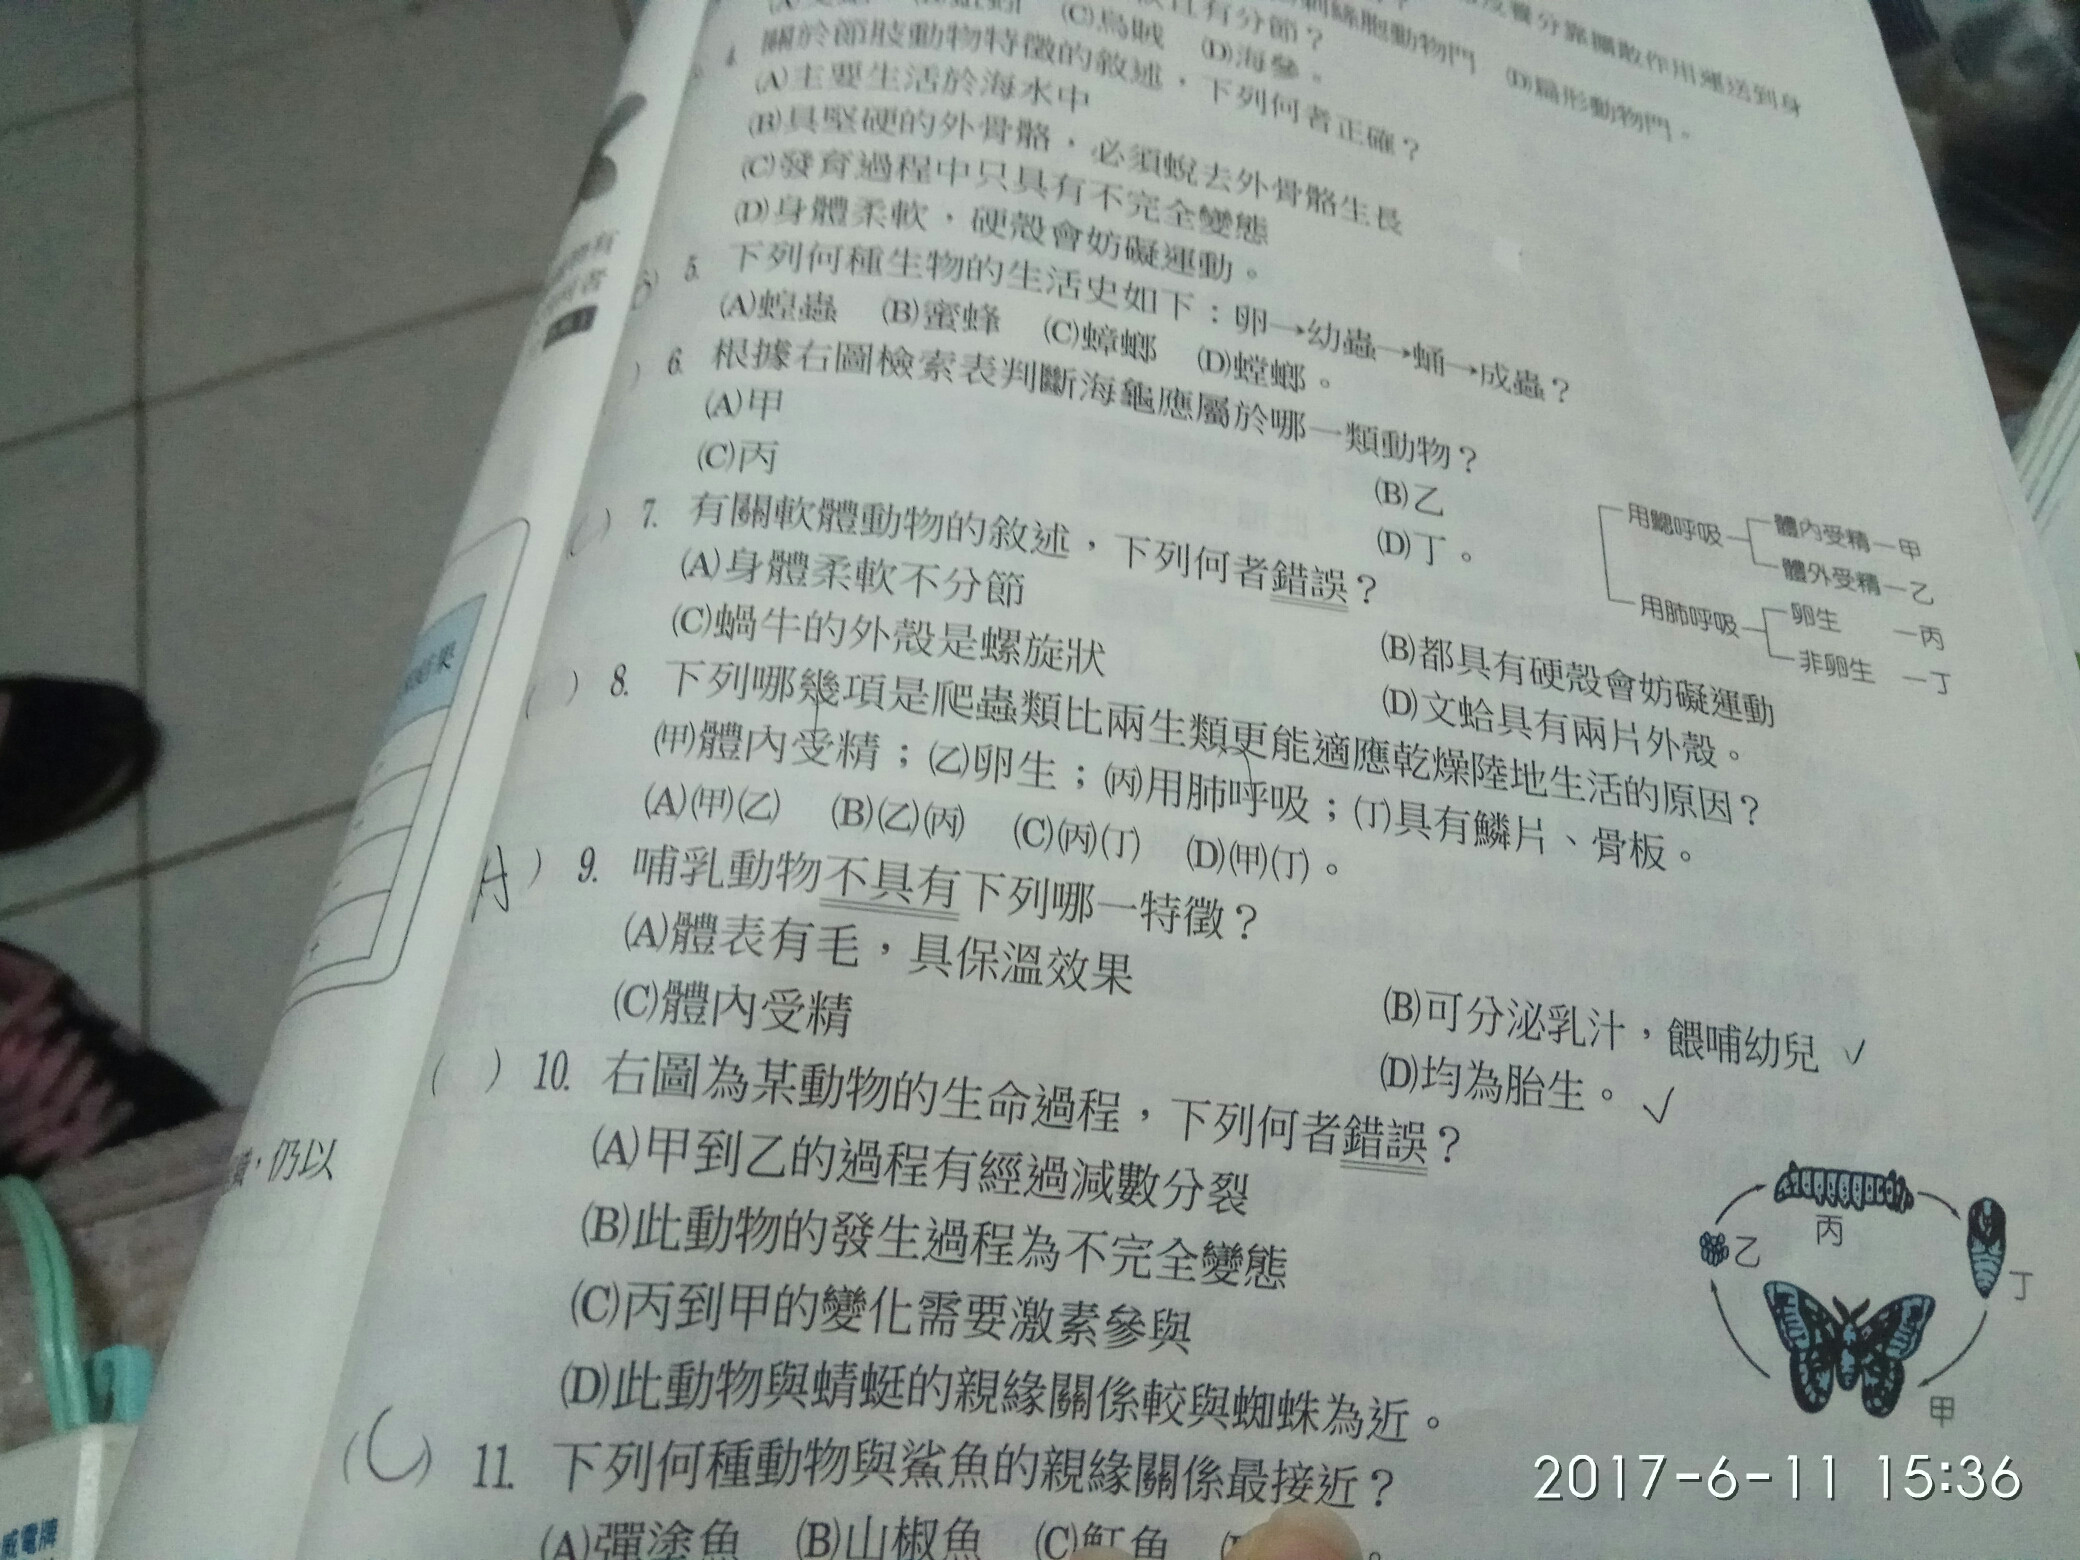 反養分靠擴散作用運送到身
刺絲胞動物門 (D)扁形動物門。
有分節？
(C)烏賊 (D)海參。
4. 關於節肢動物特徵的敘述，下列何者正確？
(A)主要生活於海水中
(B)具堅硬的外骨骼，必須蛻去外骨骼生長
(C)發育過程中只具有不完全變態
(D)身體柔軟，硬殼會妨礙運動。
5. 下列何種生物的生活史如下：卵→幼蟲→蛹→成蟲？
(A)蝗蟲 (B)蜜蜂 (C)蟑螂 (D)螳螂。
( ) 6. 根據右圖檢索表判斷海龜應屬於哪一類動物？
(A)甲 (B)乙
(C)丙 (D)丁。
用鰓呼吸 體內受精—甲
體外受精—乙
用肺呼吸 卵生 —丙
非卵生 —丁
( ) 7. 有關軟體動物的敘述，下列何者錯誤？
(A)身體柔軟不分節 (B)都具有硬殼會妨礙運動
(C)蝸牛的外殼是螺旋狀 (D)文蛤具有兩片外殼。
( ) 8. 下列哪幾項是爬蟲類比兩生類更能適應乾燥陸地生活的原因？
(甲)體內受精；(乙)卵生；(丙)用肺呼吸；(丁)具有鱗片、骨板。
(A)(甲)(乙) (B)(乙)(丙) (C)(丙)(丁) (D)(甲)(丁)。
(A) 9. 哺乳動物不具有下列哪一特徵？
(A)體表有毛，具保溫效果 (B)可分泌乳汁，餵哺幼兒 ✓
(C)體內受精 (D)均為胎生。 ✓
( ) 10. 右圖為某動物的生命過程，下列何者錯誤？
(A)甲到乙的過程有經過減數分裂
(B)此動物的發生過程為不完全變態
(C)丙到甲的變化需要激素參與
(D)此動物與蜻蜓的親緣關係較與蜘蛛為近。
丙
乙
丁
甲
(C) 11. 下列何種動物與鯊魚的親緣關係最接近？
(A)彈塗魚 (B)山椒魚 (C)魟魚
，仍以
威電牌
2017-6-11 15:36